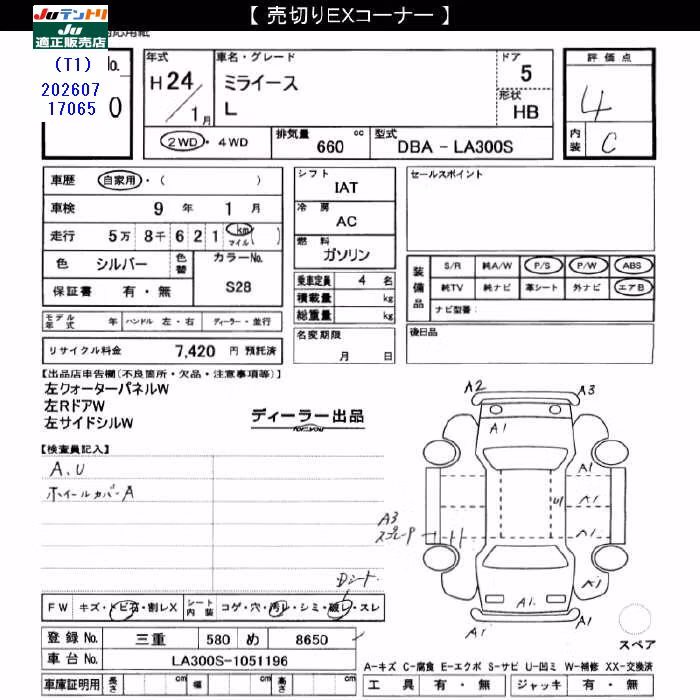 【 売切りEXコーナー 】
Juテントリ
Ju
適正販売店
対応用紙
(T1)
202607
17065
No.
0
年式
H24/1月
車名・グレード
ミライース
L
ドア
5
形状
HB
評価点
4
内装
C
2WD・4WD
排気量 660 cc
型式 DBA - LA300S
車歴 自家用・( )
車検 9 年 1 月
走行 5万 8千 6 2 1 km マイル ( )
色 シルバー 色替 カラーNo.
保証書 有・無 S28
モデル年式 年 ハンドル 左・右 ディーラー・並行
リサイクル料金 7,420 円 預託済
シフト
IAT
冷房
AC
燃料
ガソリン
乗車定員 4 名
積載量 kg
総重量 kg
名変期限
月 日
セールスポイント
装備品
S/R 純A/W P/S P/W ABS
純TV 純ナビ 革シート 外ナビ エアB
ナビ型番:
後日品
【出品店車告欄(不良箇所・欠品・注意事項等)】
左クォーターパネルW
左RドアW
左サイドシルW
ディーラー出品
FOR:YOU
【検査員記入】
A、U
ホイールカバーA
Dシート
FW キズ・トビ石・割レX シート内装 コゲ・穴・汚レ・シミ・破レ・スレ
登録 No. 三重 580 め 8650
車台 No. LA300S-1051196
車庫証明用 長さ cm 幅 cm 高さ cm
A2
A3
A1
A1
A1
U
A1
A3
スプレーP
A1
A1
A1
A1
スペア
A-キズ C-腐食 E-エクボ S-サビ U-凹ミ W-補修 XX-交換済
工具 有・無 ジャッキ 有・無